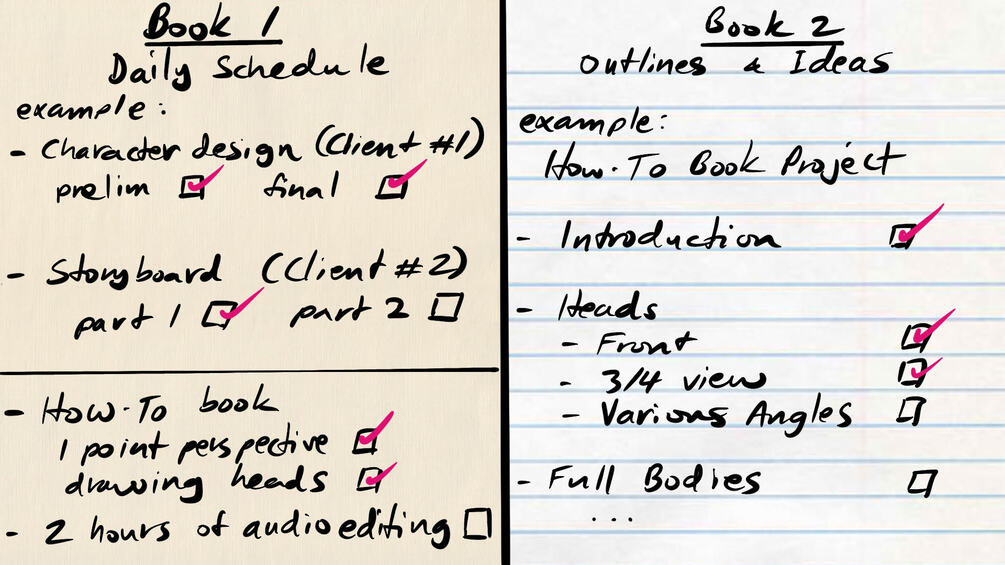 Book 1
Daily Schedule
example:
- Character design (Client #1)
prelim ☑ final ☑
- Storyboard (Client #2)
part 1 ☑ part 2 ☐
- How-To book
1 point perspective ☑
drawing heads ☑
- 2 hours of audio editing ☐
Book 2
Outlines & Ideas
example:
How-To Book Project
- Introduction ☑
- Heads
- Front ☑
- 3/4 view ☑
- Various Angles ☐
- Full Bodies ☐
...